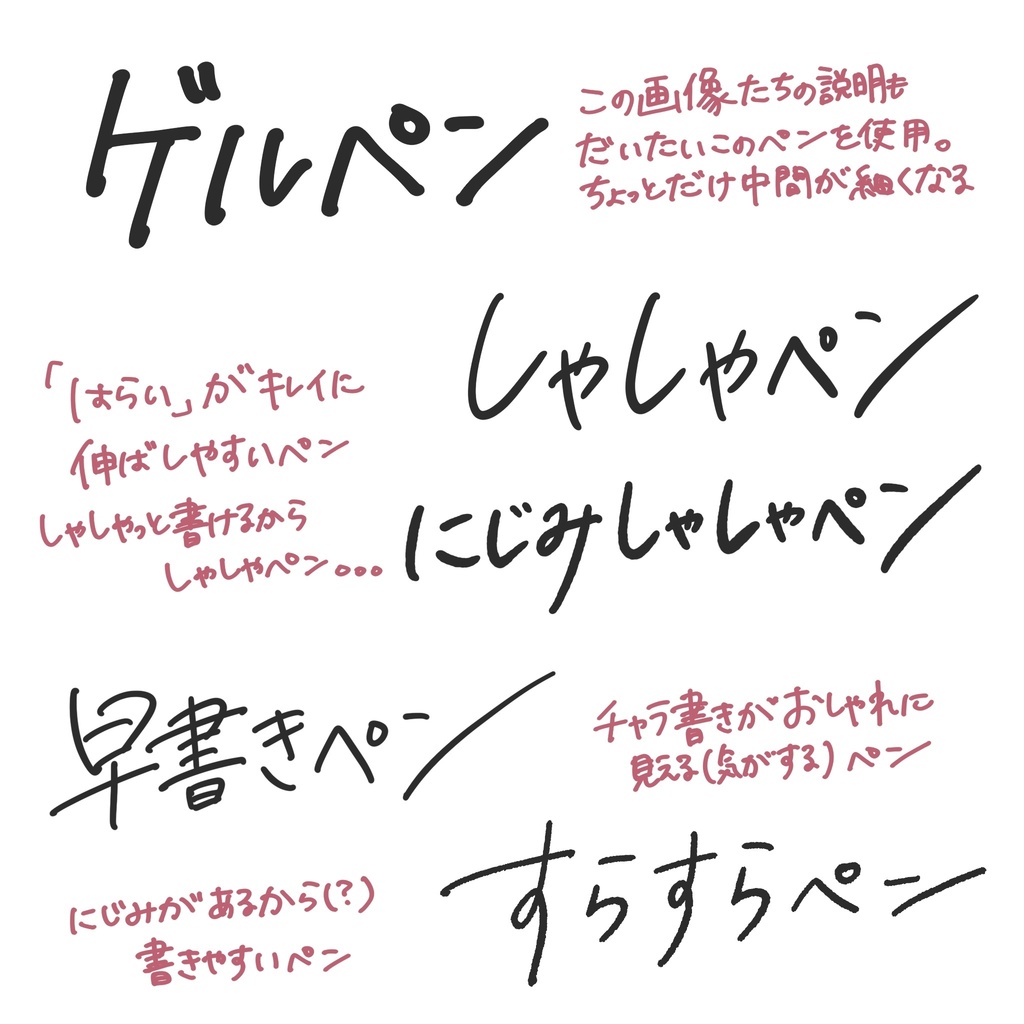 ゲルペン
この画像たちの説明も
だいたいこのペンを使用。
ちょっとだけ中間が細くなる
しゃしゃペン
「はらい」がキレイに
伸ばしやすいペン
しゃしゃっと書けるから
しゃしゃペン。。。
にじみしゃしゃペン
早書きペン
チャラ書きがおしゃれに
見える(気がする)ペン
すらすらペン
にじみがあるから(?)
書きやすいペン